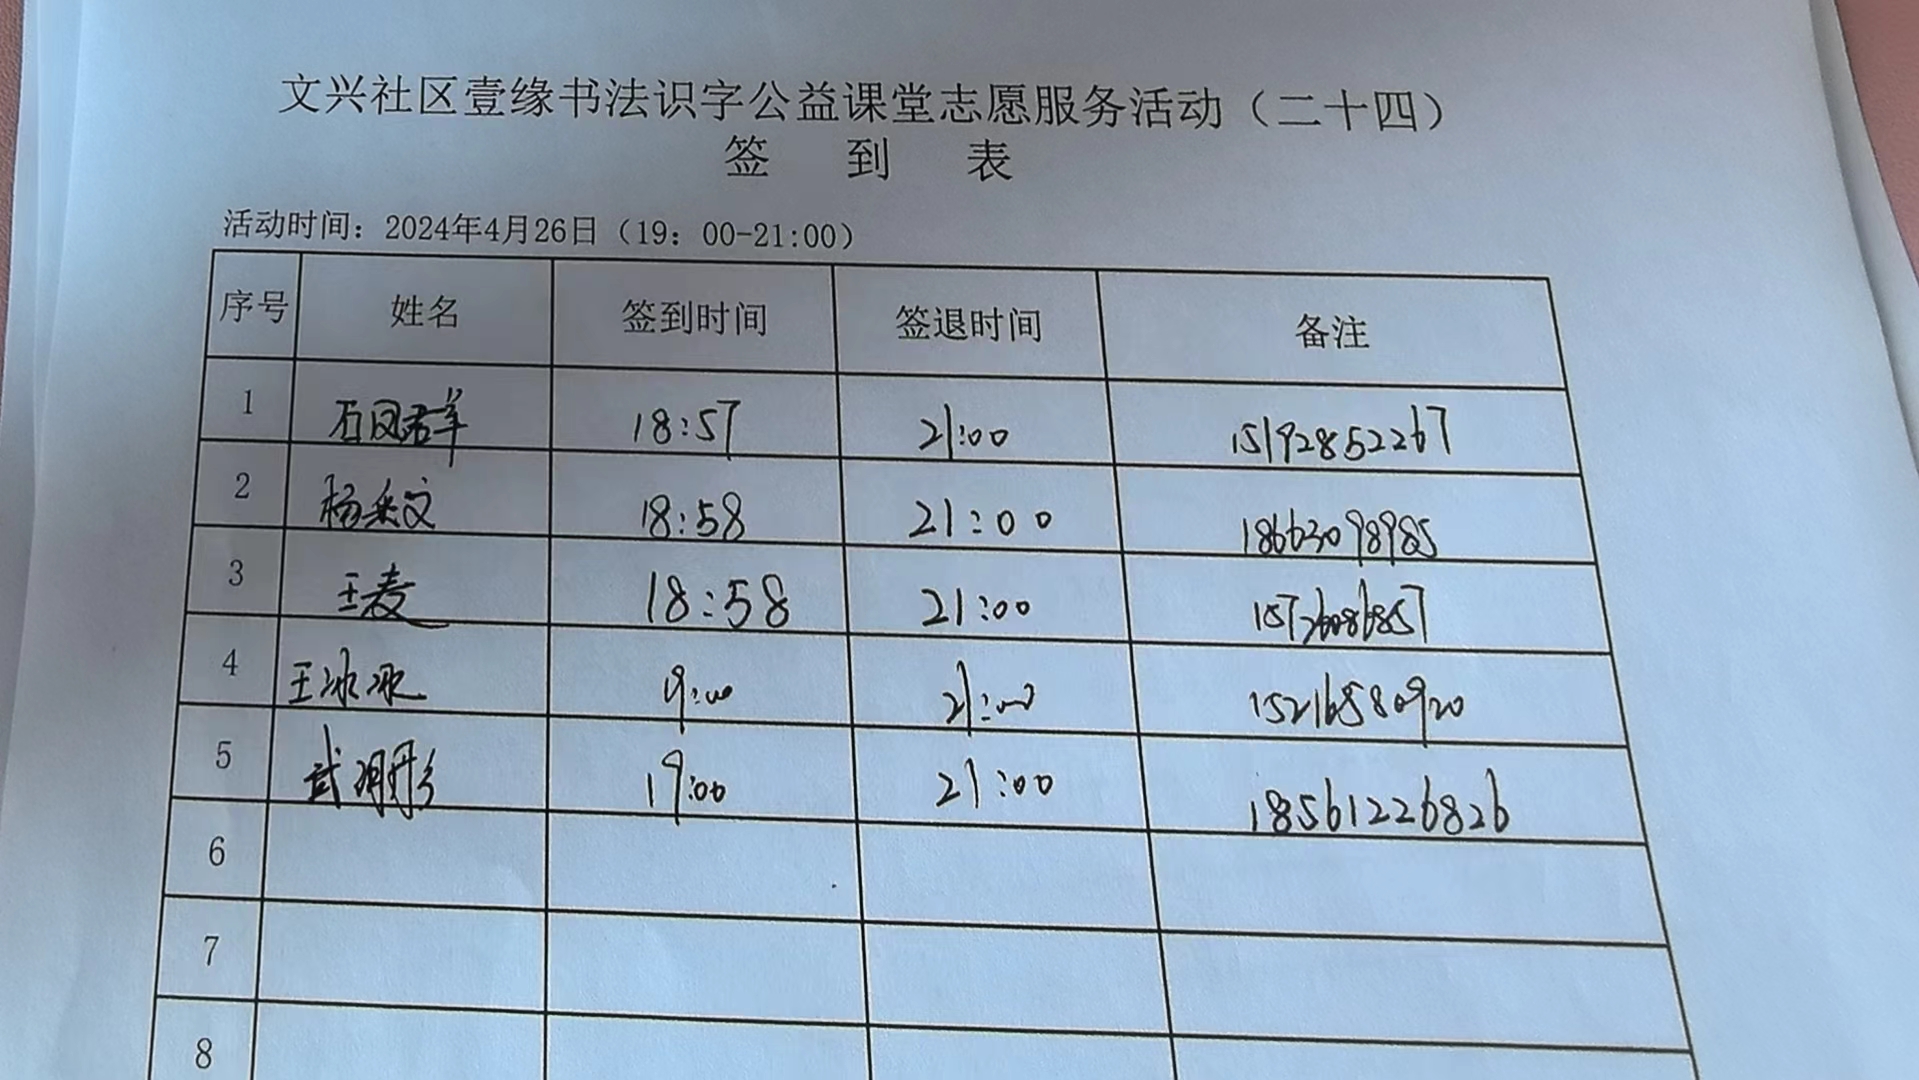 文兴社区壹缘书法识字公益课堂志愿服务活动（二十四）
签 到 表
活动时间：2024年4月26日（19：00-21:00）
序号 姓名 签到时间 签退时间 备注
1 石风群 18:57 21:00 15192852267
2 杨采文 18:58 21:00 18663098985
3 王麦 18:58 21:00
4 王冰冰 19:00 21:00 15216580920
5 武明彤 19:00 21:00 18561226826
6
7
8